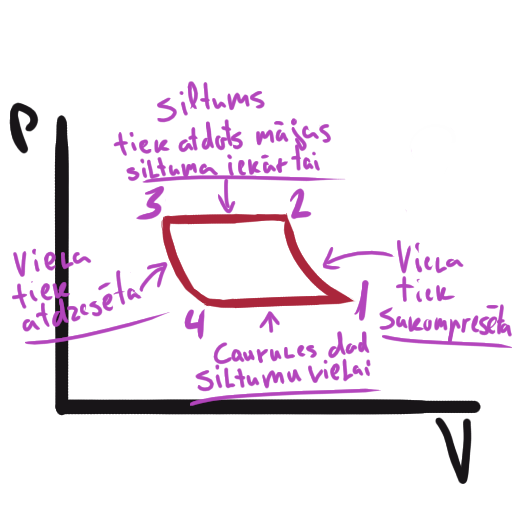 P
Siltums
tiek atdots mājas
siltuma iekārtai
3
2
Viela
tiek
atdzesēta
Viela
tiek
Sakompresēta
4
1
Caurules dod
Siltumu vielai
V